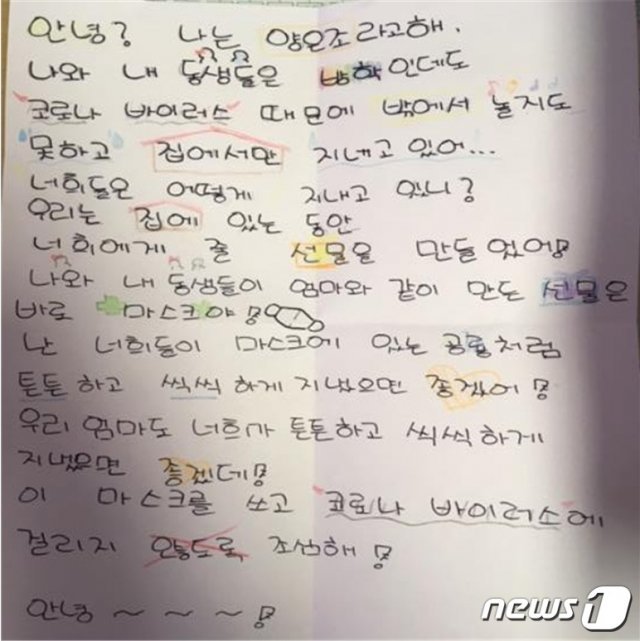 안녕? 나는 양은조라고해.
나와 내 동생들은 방학인데도
코로나 바이러스 때문에 밖에서 놀지도
못하고 집에서만 지내고 있어...
너희들은 어떻게 지내고 있니?
우리는 집에 있는 동안
너희에게 줄 선물을 만들었어!
나와 내 동생들이 엄마와 같이 만든 선물은
바로 마스크야!
난 너희들이 마스크에 있는 공룡처럼
튼튼하고 씩씩하게 지냈으면 좋겠어!
우리 엄마도 너희가 튼튼하고 씩씩하게
지냈으면 좋겠데!
이 마스크를 쓰고 코로나 바이러스에
걸리지 않도록 조심해!
안녕~~~!
news1